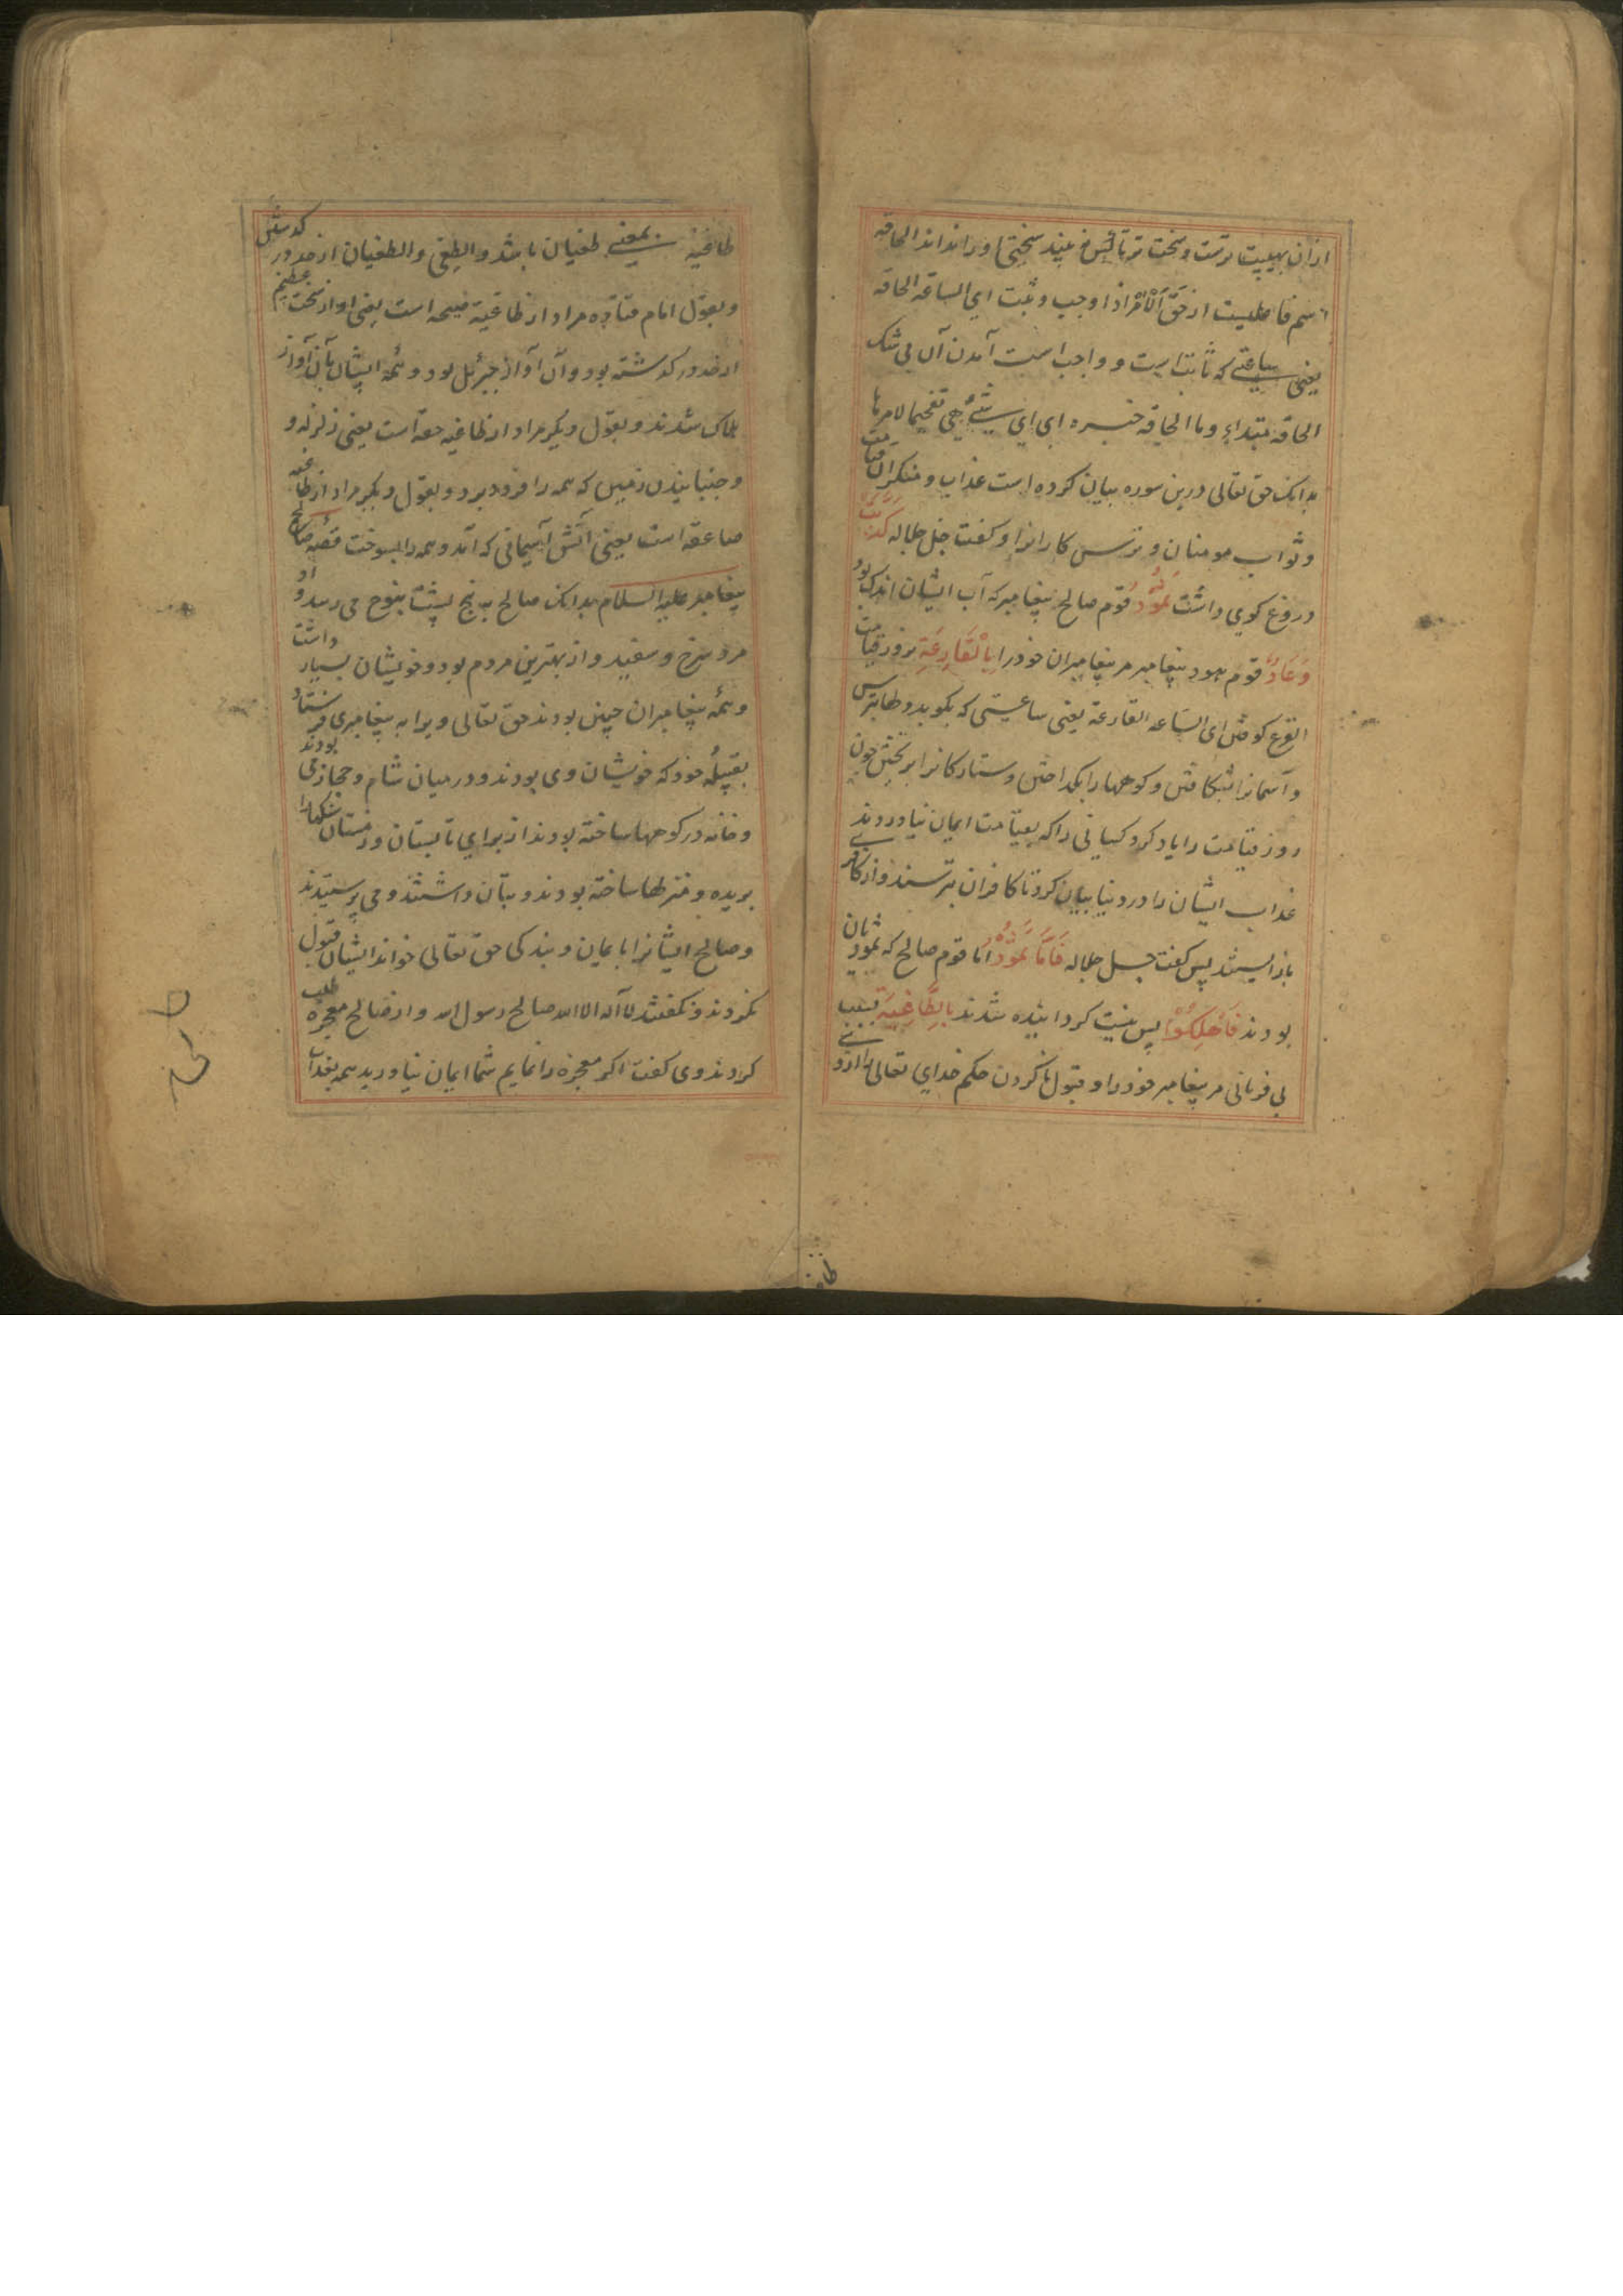 ازان بهیبت ترست و سخت تر تا کس نه بیند سختی او را نداند الحاقه
اسم فاعلست از حَقَّ اَلْاَمْرُ اذا وجب و ثبت ای الساعة الحاقه
یعنی ساعتی که ثابت است و واجب است آمدن آن بی شک
الحاقه مبتداء و ما الحاقه خبره ای ای شیٔ هی تفخیما لامرها
بدانک حق تعالی درین سوره بیان کرده است عذاب و منکران قیامت
و ثواب مومنان و ترس کارانرا و کفت جل جلاله کَذَّبَتْ
دروغ کوی داشت ثَمُوْدُ قوم صالح پیغامبر که آب ایشان اندک بود
وَعَادٌ قوم هود پیغامبر مر پیغامبران خود را بِالْقَارِعَةِ بروز قیامت
القرع کوفتن ای الساعه القارعة یعنی ساعتی که بکوبد دلها بترس
و آسمانرا بشکافتن و کوهها را بکداختن و ستارکانرا بریختن چون
روز قیامت را یاد کرد کسانی را که بقیامت ایمان نیاوردند
عذاب ایشان را در دنیا بیان کرد تا کافران بترسند و از کافری
باز ایستند پس کفت جل جلاله فَاَمَّا ثَمُوْدُ اما قوم صالح که ثمودیان
بودند فَاُهْلِكُوْا پس نیست کردانیده شدند بِالطَّاغِيَةِ بسبب
بی فرمانی مر پیغامبر خود را و قبول ناکردن حکم خدای تعالی را
طاغیة بمعنی طغیان باشد والطغی والطغیان از حد در کدشتن
و بقول امام قتاده مراد از طاغیة صیحه است یعنی اواز سخت عظیم
از حد در کدشته بود و آن آواز جبرئیل بود و همه ایشان بآن آواز
هلاک شدند و بقول دیکر مراد از طاغیه است یعنی زلزله و
و جنبانیدن زمین که همه را فرود برد و بقول دیکر مراد از طاغیه
صاعقه است یعنی آتش آسمانی که آمد و همه را بسوخت قصهٔ صالح
پیغامبر علیه السلام بدانک صالح به پنج پشت بنوح می رسد و او
مرد سرخ و سفید و از بهترین مردم بود و خویشان بسیار داشت
و همه پیغامبران چنین بودند حق تعالی ویرا به پیغامبری فرستاد
بقبیلهٔ خود که خویشان وی بودند و در میان شام و حجاز می بودند
و خانه در کوهها ساخته بودند از برای تابستان و زمستان سنکها را
بریده و منزلها ساخته بودند و بتان داشتند و می پرستیدند
و صالح ایشانرا بایمان و بندکی حق تعالی خواند ایشان قبول
نکردند و نکفتند لا آله الا الله صالح رسول الله و از صالح معجزه طلب
کردند وی کفت اکر معجزه را نمایم شما ایمان نیاورید همه بعذاب